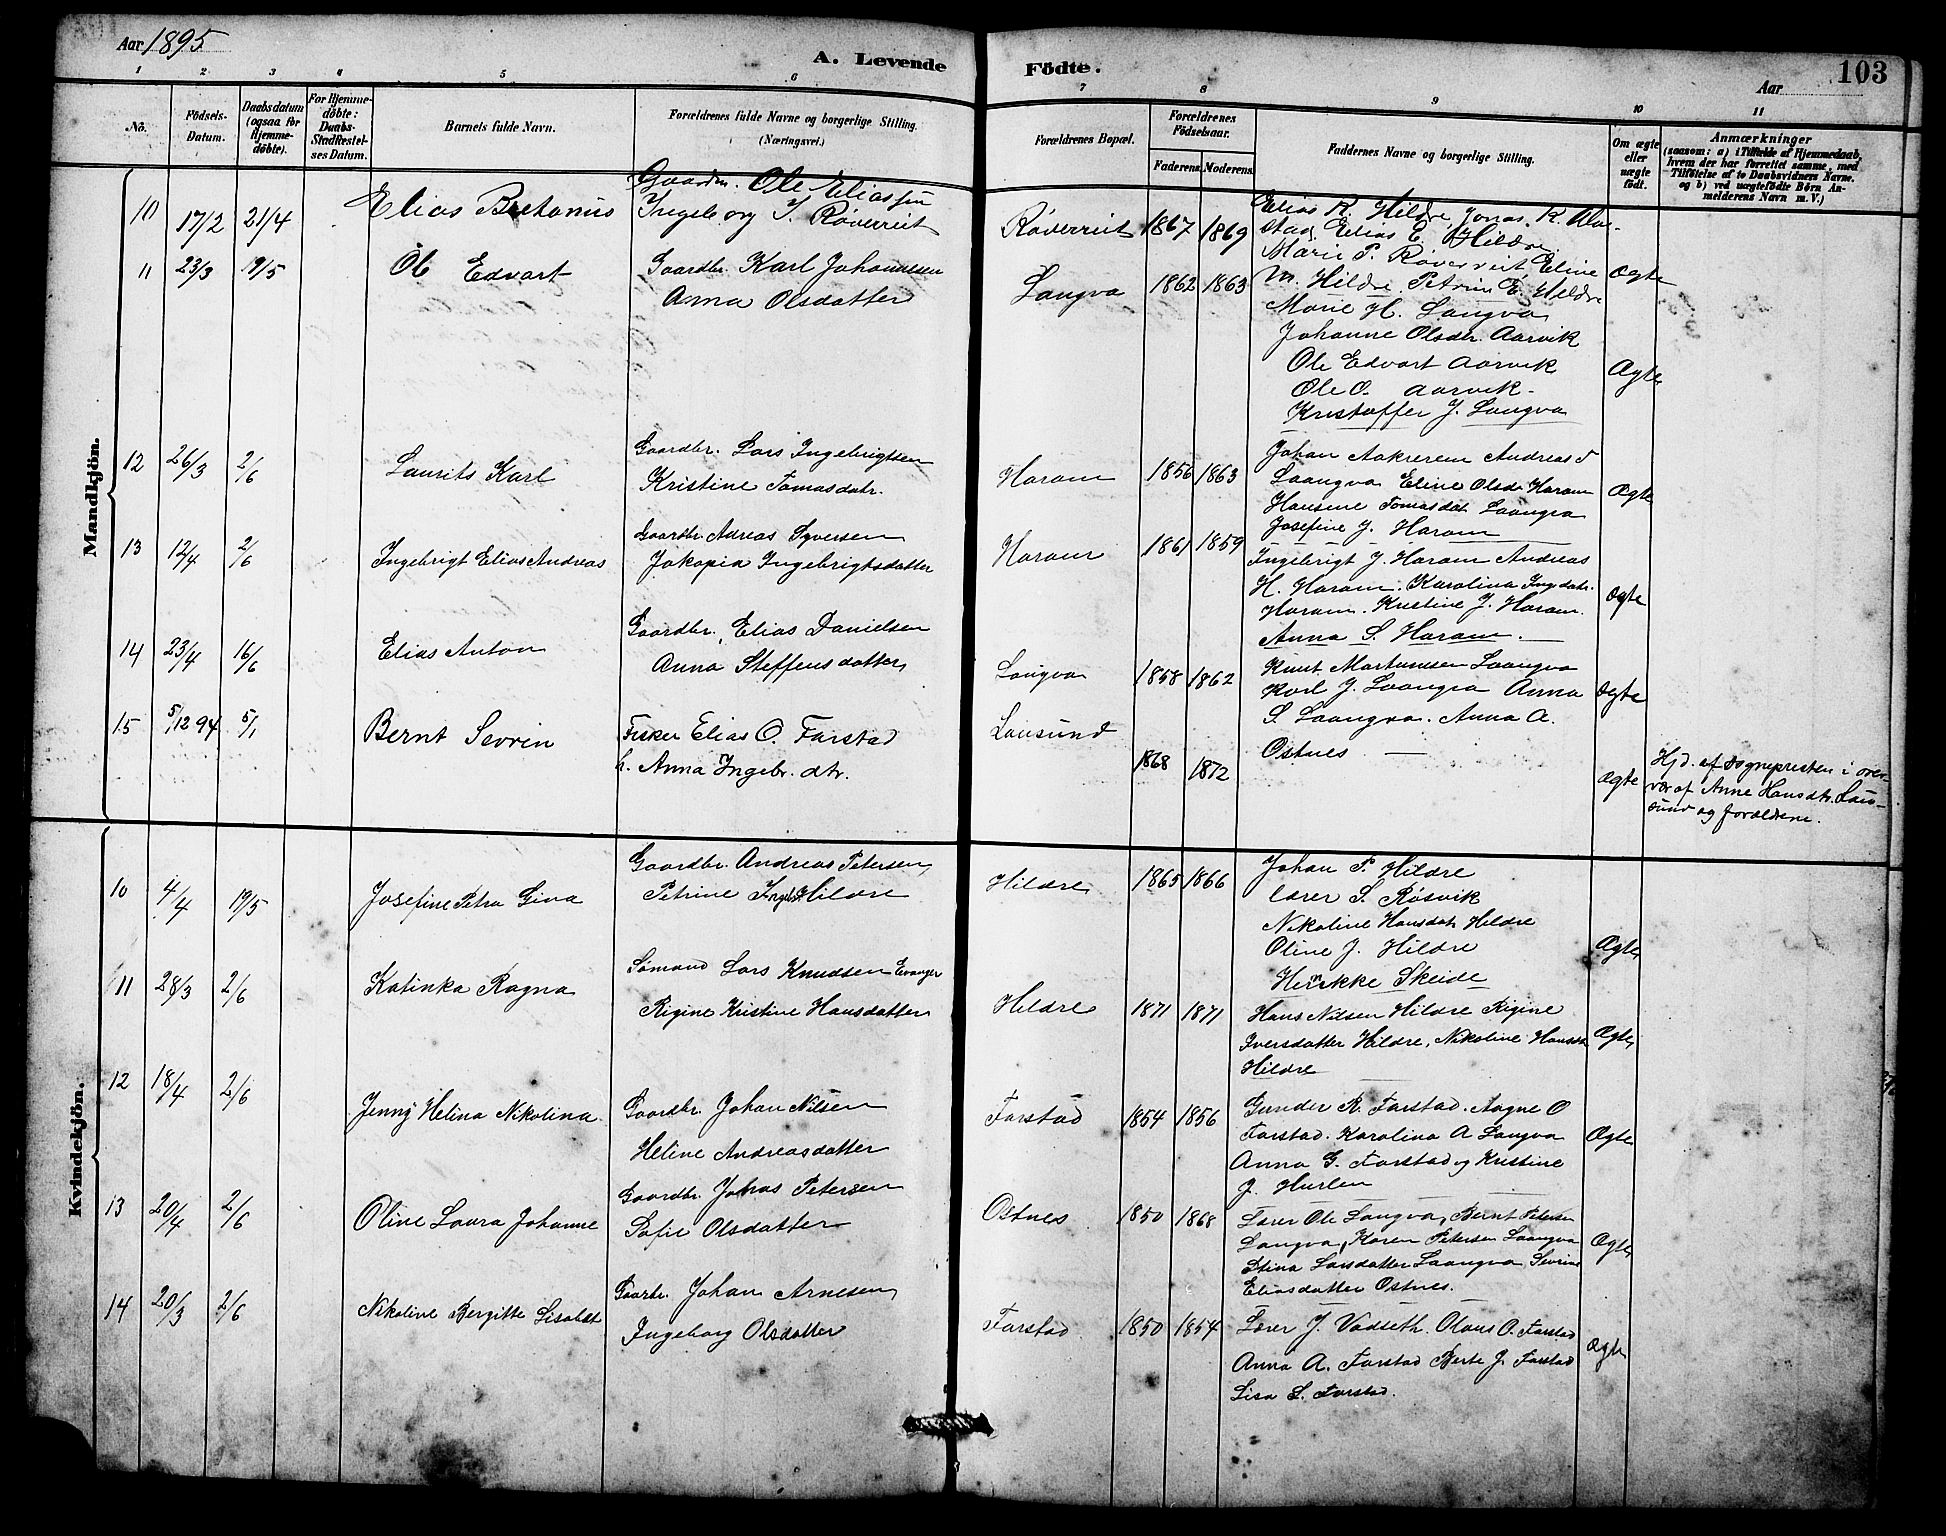 Aar 1895
A. Levende Födte.
Aar
103
1 2 3 4 5 6 7 8 9 10 11
No.
Födsels-Datum.
Daabsdatum (ogsaa for Hjemme-döbte).
For Hjemme-döbte: Daabs-Stadfæstel-ses Datum.
Barnets fulde Navn.
Forældrenes fulde Navne og borgerlige Stilling. (Næringsvei.)
Forældrenes Bopæl.
Forældrenes Födselsaar.
Faderens. Moderens.
Faddernes Navne og borgerlige Stilling.
Om ægte eller uægte födt.
Anmærkninger
(saasom: a) i Tilfælde af Hjemmedaab,
hvem der har forrettet samme, med
Tilföielse af to Daabsvidners Navne.
og b) ved uægtefödte Börn An-
melderens Navn m. V.)
Mandkjön.
10 17/2 21/4
Elias
Gaardm. Ole Eliassen
Ingeborg J. Röverreit
Röverreit 1867 1869
Elias K. Hildre, Jonas K.
stad, Elias E. Hildre
Marie P. Röverreit, Eline
M. Hildre. Petrine E. Hildre
Ægte
11 23/3 19/5
Ole Edvart
Gaardbr. Karl Johannesen
Anna Olsdatter
Longva 1862 1863
Marie H. Longva
Johanne Olsdtr. Aarvik
Ole Edvart Aarvik
Ole O. Aarvik
Kristoffer J. Longva
Ægte
12 26/3 2/6
Laurits Karl
Gaardbr. Lars Ingebrigtsen
Kristine Tomasdatr.
Haram 1856 1863
Johan Aakrerem Andreas
Laangva Eline Olsdr Haram
Hansine Tomasdat Laangva
Josefine J. Haram
Ægte
13 12/4 2/6
Ingebrigt Elias Andreas
Gaardbr Adreas Syversen
Jakopia Ingebrigtsdatter
Haram 1861 1859
Ingebrigt J. Haram Andreas
H. Haram. Karolina Ingdatr.
Haram. Kristine J. Haram.
Anna S. Haram.
Ægte
14 23/4 16/6
Elias Anton
Gaardbr. Elias Danielsen
Anna Steffensdatter
Longva 1858 1862
Knut Martinusen Laangva
Karl J. Laangva Anna
S. Laangva. Anna A.
Ostnes
Ægte
15 5/12 94 5/1
Bernt Sevrin
Fisker Elias O. Farstad
h. Anna Ingebr. dtr.
Lausund 1868 1872
Ægte
Hjd. af Sognepresten i over-
vær af Anne Hansdtr. Lau-
sund og forældrene.
Kvindekjön.
10 4/4 19/5
Josefine Petra Gina
Gaardbr. Andreas Petersen
Petrine Hildre
Hildre 1865 1866
Johan P. Hildre
Lærer S. Røsvik
Nikoline Hansdatr Hildre
Oline J. Hildre
Henrikke Skeide
Ægte
11 28/3 2/6
Katinka Ragna
Sömand Lars Knudsen Evanger
Rigine Kristine Hansdatter
Hildre 1871 1871
Hans Nilsen Hildre Rigine
Iversdatter Hildre, Nikoline Hansdt
Hildre
Ægte
12 18/4 2/6
Jenny Helina Nikolina
Gaardbr. Johan Nilsen
Heline Andreasdatter
Farstad 1854 1856
Gunder R. Farstad. Aagne O
Farstad. Karolina A Langva
Anna G. Farstad og Kristine
J. Hurlen
Ægte
13 20/4 2/6
Oline Laura Johanne
Gaardbr. Johas Petersen
Sofie Olsdatter
Ostnes 1850 1868
Lærer Ole Langva, Bernt Petersen
Langva, Karen Petersen Laangva
Stina Larsdatter Laangva Sevrine
Eliasdatter Ostnes.
Ægte
14 20/3 2/6
Nikoline Bergitte Lisabet
Gaarbr. Johan Arnesen
Ingeborg Olsdatter
Farstad 1850 1854
Lærer J. Vadseth. Olaus O. Farstad
Anna A. Farstad Berte J. Farstad
Lisa L. Farstad.
Ægte